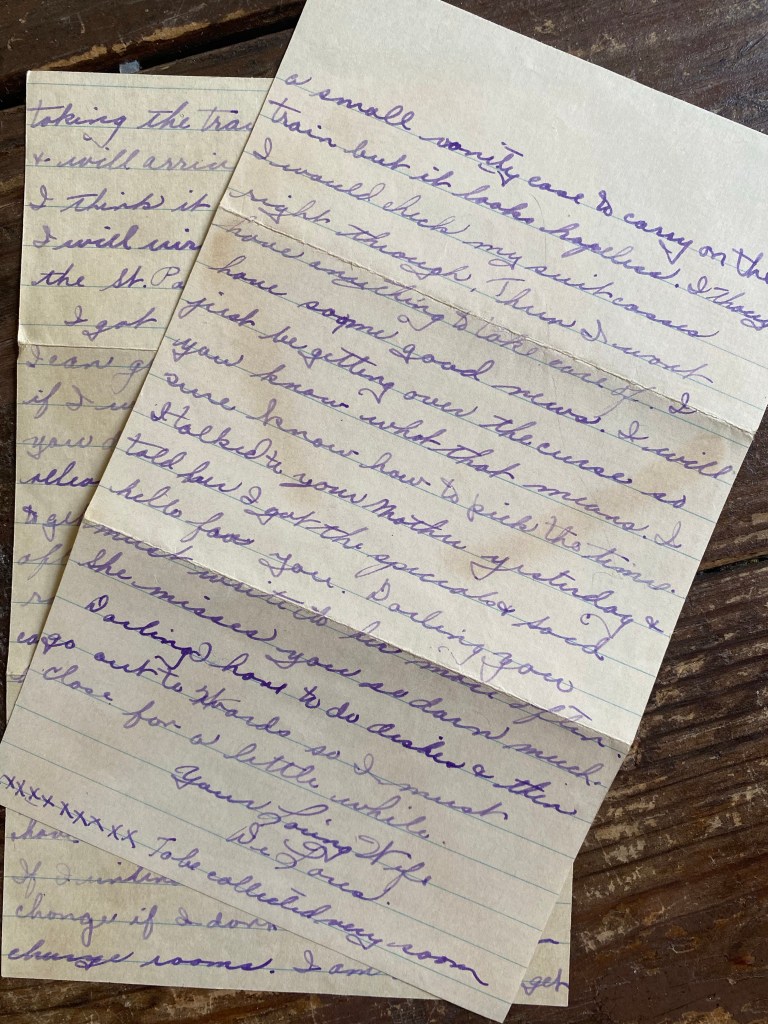 a small vanity case to carry on the
train but it looks hopeless. I thoug
I would check my suitcasses
right through. Then I wont
have anything to take care of. I
have some good news. I will
just be getting over the curse so
you know what that means. I
sure know how to pick the time.
I talked to your Mother yesterday &
told her I got the special & said
hello for you. Darling you
must write to her more often.
She misses you so darn much.
Darling I have to do dishes & then
go out to Wards so I must
close for a little while.
Your Loving Wife
xxxxxxxxx To be collected very soon
taking the tra
& will arriv
I think it
I will wir
the St. Pa
I got
I can g
if I w
you
relea
& ge
of
hav
If I
change if I don
change rooms. I am get